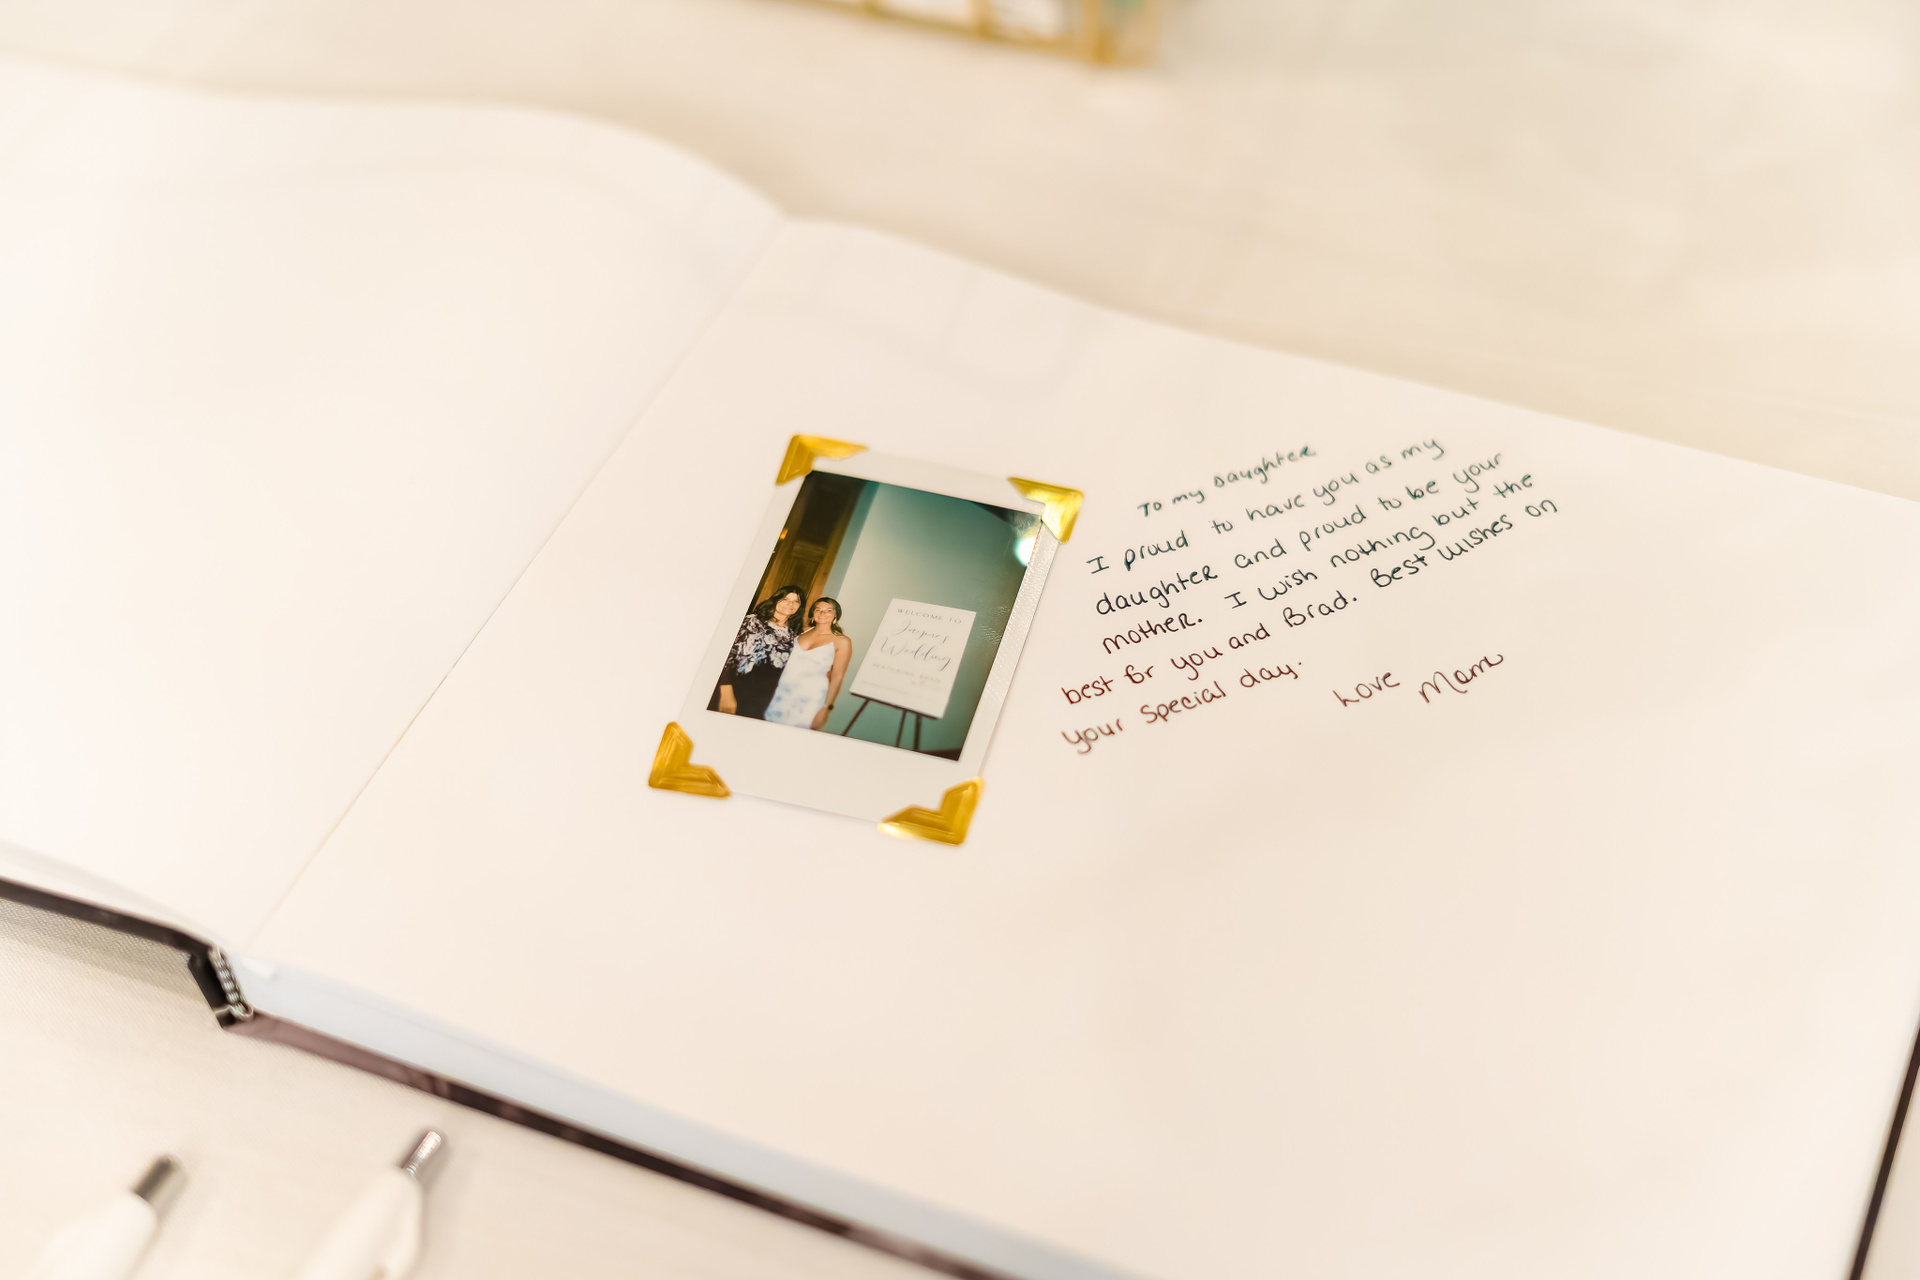 WELCOME TO
Wedding
To my Daughter
I proud to have you as my
daughter and proud to be your
mother. I wish nothing but the
best for you and Brad. Best wishes on
your special day.
Love
Mom